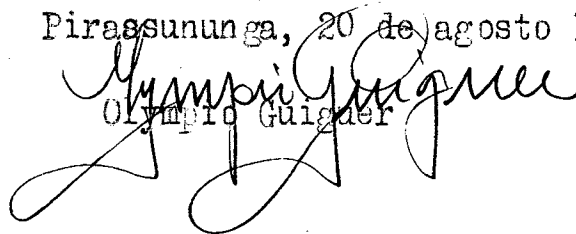 Pirassununga, 20 de agosto
Olympio Guiguer
Olympio Guiguer